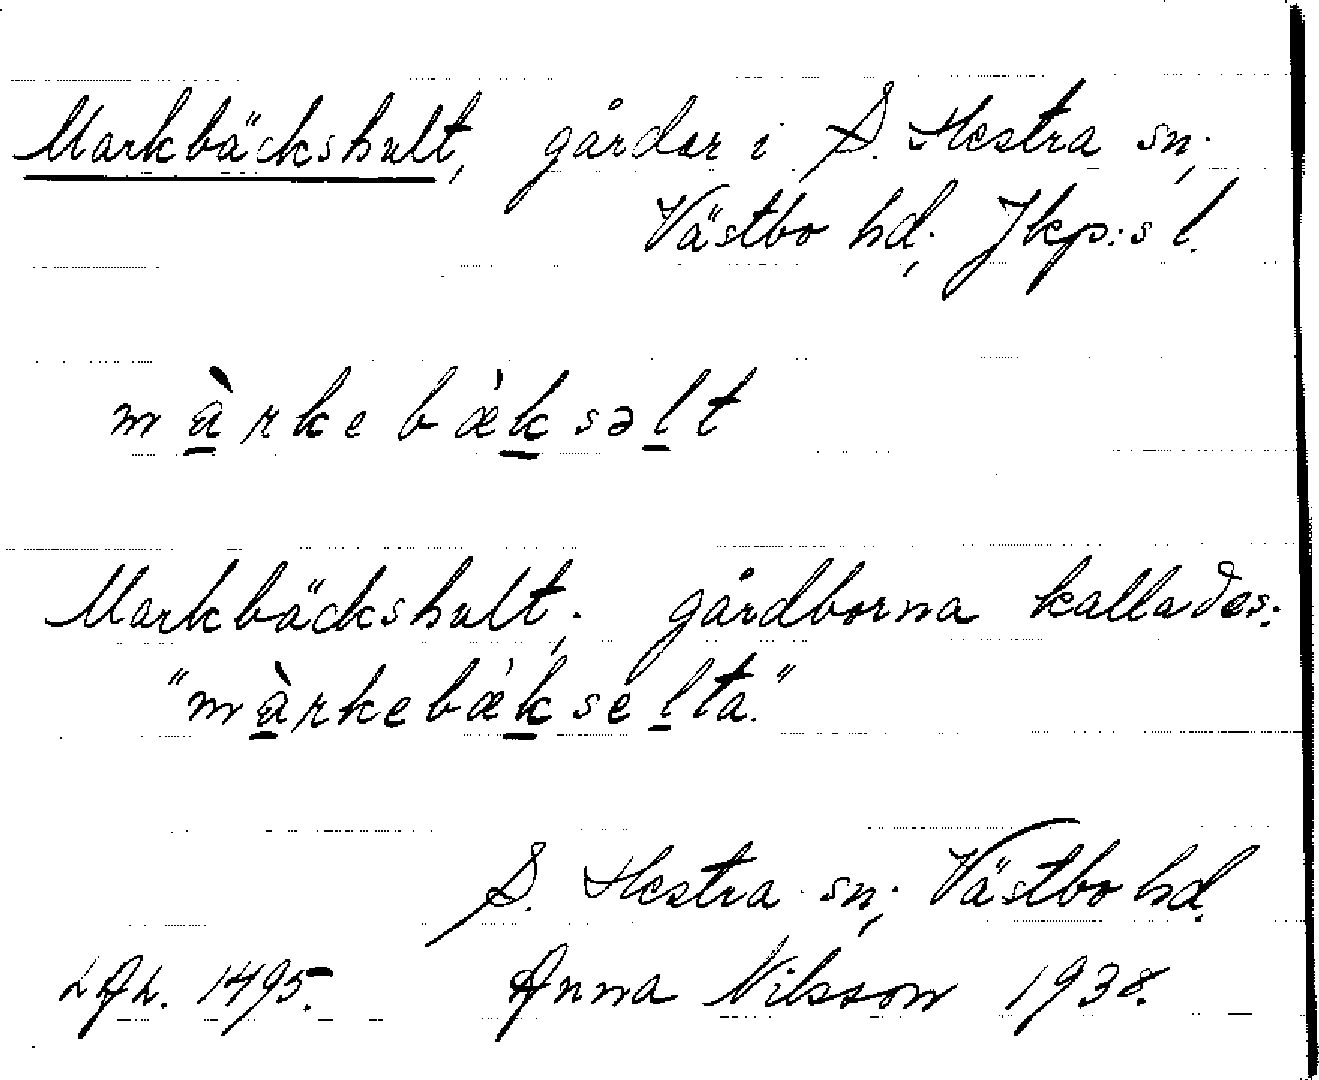 Markbäckshult, gårdar i S. Hestra sn;
Västbo hd; Jkp:s l.
màrkebæ̀ksəlt
Markbäckshult; gårdborna kallades:
"màrkebæ̀kselta."
S. Hestra sn; Västbo hd.
1495. Anna Nilsson 1938.